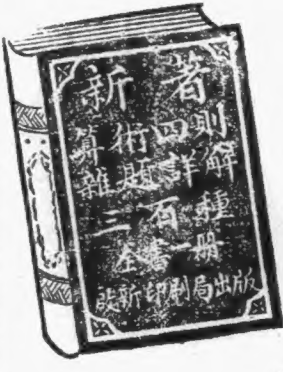 新著
算術四則
雜題詳解
三百種
全書一册
啟新印刷局出版